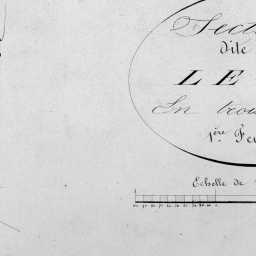 Secti
dite
LE
En trou
1ère Fe
Echelle de